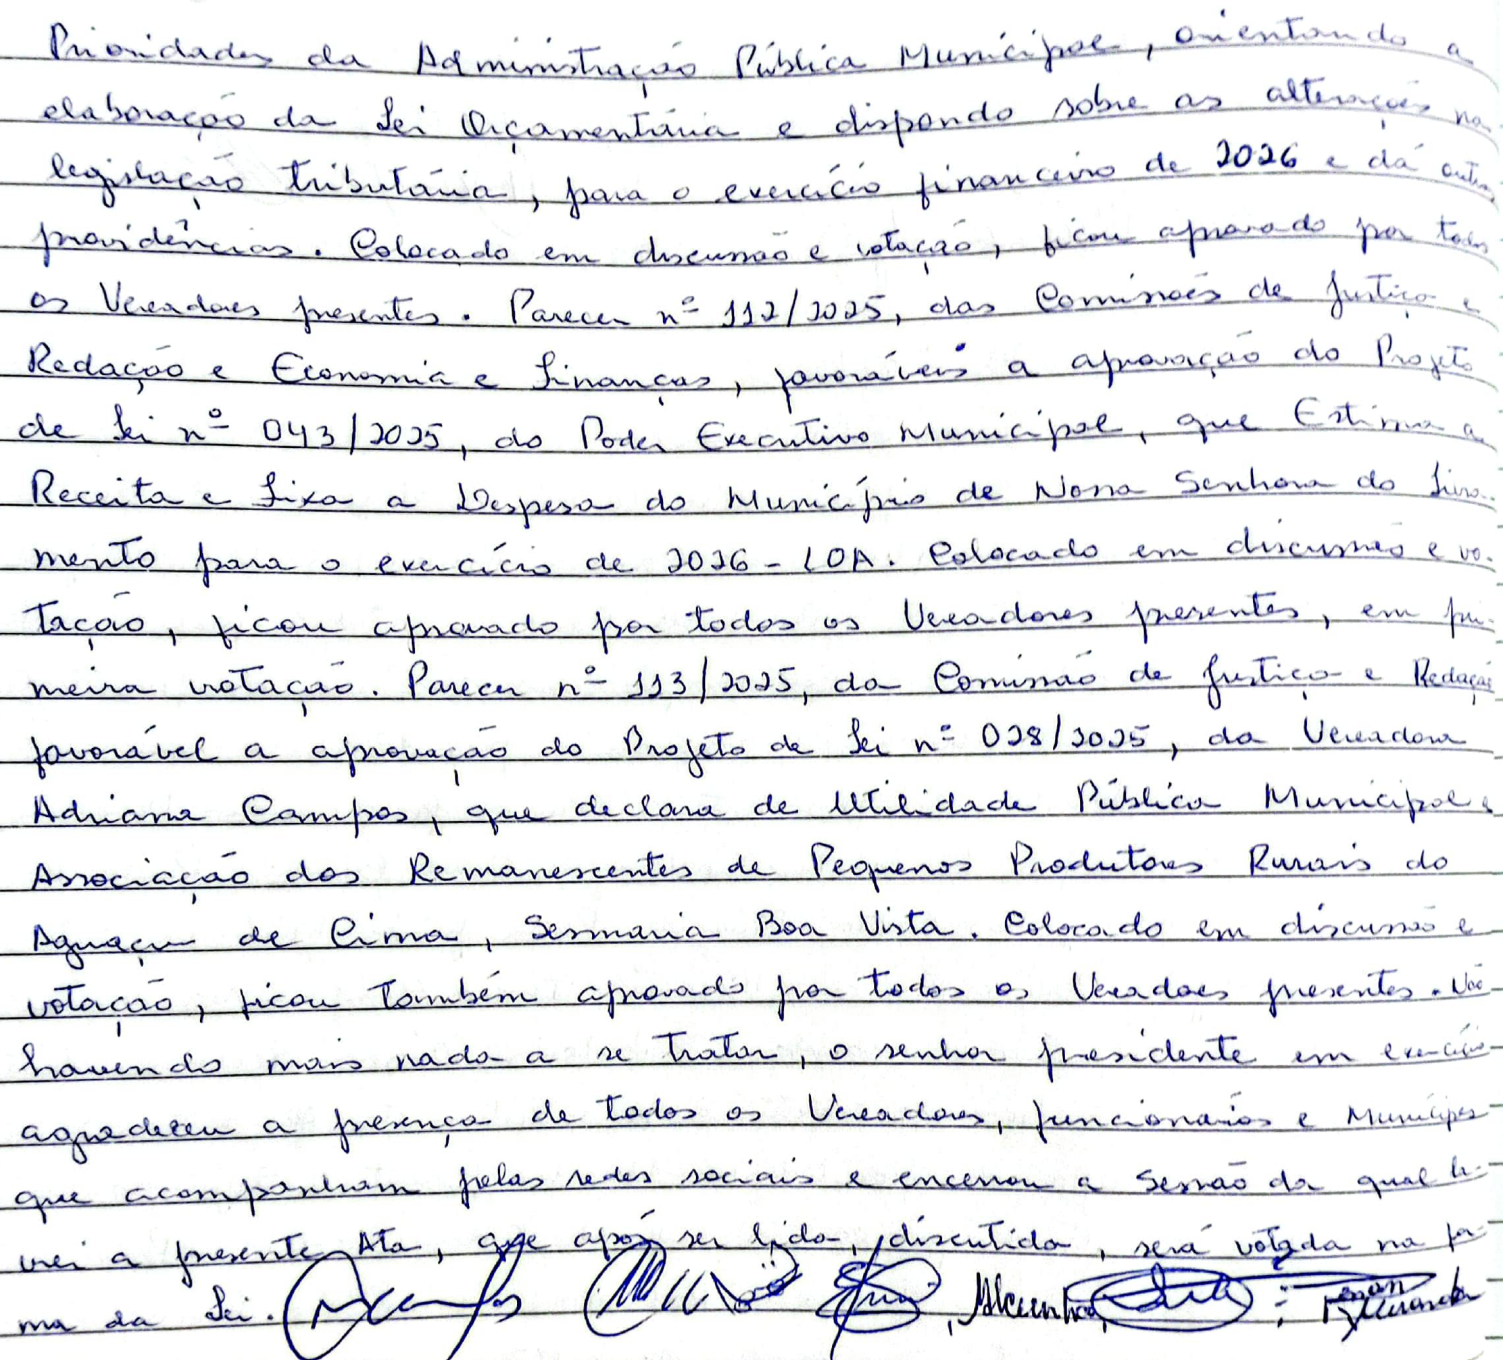 Prioridades da Administração Pública Municipal, orientando a
elaboração da Lei Orçamentária e dispondo sobre as alterações na
legislação tributária, para o exercício financeiro de 2026 e dá outras
providências. Colocado em discussão e votação, ficou aprovado por todos
os Vereadores presentes. Parecer nº 112/2025, das Comissões de Justiça e
Redação e Economia e Finanças, favoráveis a aprovação do Projeto
de Lei nº 043/2025, do Poder Executivo Municipal, que Estima a
Receita e Fixa a Despesa do Município de Nossa Senhora do Livra-
mento para o exercício de 2026 - LOA. Colocado em discussão e vo-
tação, ficou aprovado por todos os Vereadores presentes, em pri-
meira votação. Parecer nº 113/2025, da Comissão de Justiça e Redação
favorável a aprovação do Projeto de Lei nº 028/2025, da Vereadora
Adriana Campos, que declara de Utilidade Pública Municipal a
Associação dos Remanescentes de Pequenos Produtores Rurais do
Aguaçu de Cima, Sesmaria Boa Vista. Colocado em discussão e
votação, ficou também aprovado por todos os Vereadores presentes. Não
havendo mais nada a se tratar, o senhor presidente em exercício
agradeceu a presença de todos os Vereadores, funcionários e Munícipes
que acompanham pelas redes sociais e encerrou a Sessão da qual la-
vrei a presente Ata, que após ser lida, discutida, será votada na for-
ma da Lei.